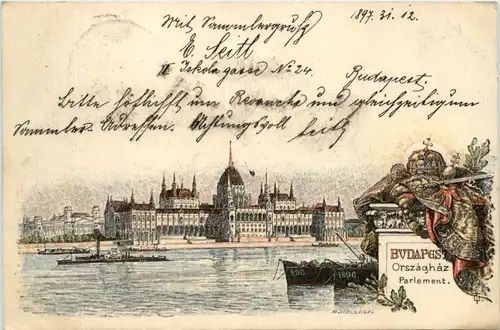 Mit Sammlergruß
1897. 31. 12.
E. Seitl
II Iskola gasse No 24.
Budapest.
Bitte höflichst um Revanche und gleichzeitig um
Sammler-Adressen. Achtungsvoll Seitl
BUDAPEST
Országház
Parlement.
896
1896